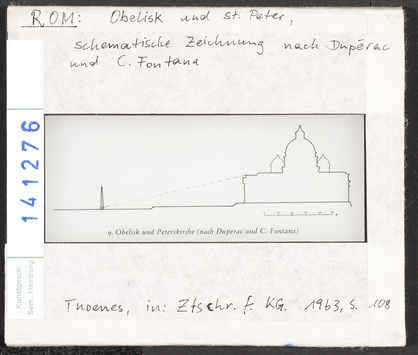 ROM: Obelisk und St. Peter,
schematische Zeichnung nach Dupérac
und C. Fontana
141276
9. Obelisk und Peterskirche (nach Duperac und C. Fontana)
Kunstgesch.
Sem. Hamburg
Thoenes, in: Ztschr. f. KG. 1963, S. 108